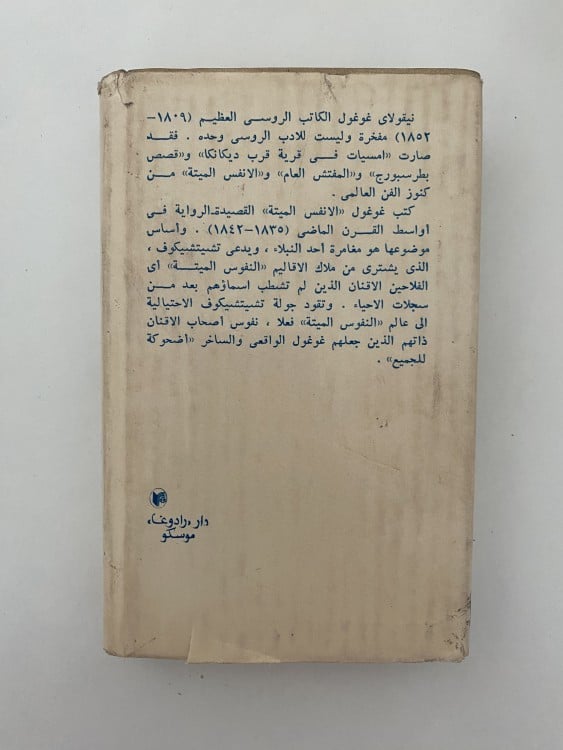 نيقولاى غوغول الكاتب الروسى العظيم (١٨٠٩–
١٨٥٢) مفخرة وليست للادب الروسى وحده . فقد
صارت «امسيات فى قرية قرب ديكانكا» و«قصص
بطرسبورج» و«المفتش العام» و«الانفس الميتة» من
كنوز الفن العالمى .
كتب غوغول «الانفس الميتة» القصيدة-الرواية فى
أواسط القرن الماضى (١٨٣٥–١٨٤٢) . وأساس
موضوعها هو مغامرة أحد النبلاء ، ويدعى تشيتشيكوف ،
الذى يشترى من ملاك الاقاليم «النفوس الميتة» أى
الفلاحين الاقنان الذين لم تشطب اسماؤهم بعد من
سجلات الاحياء . وتقود جولة تشيتشيكوف الاحتيالية
الى عالم «النفوس الميتة» فعلا ، نفوس أصحاب الاقنان
ذاتهم الذين جعلهم غوغول الواقعى والساخر «أضحوكة
للجميع» .
دار «رادوغا»
موسكو